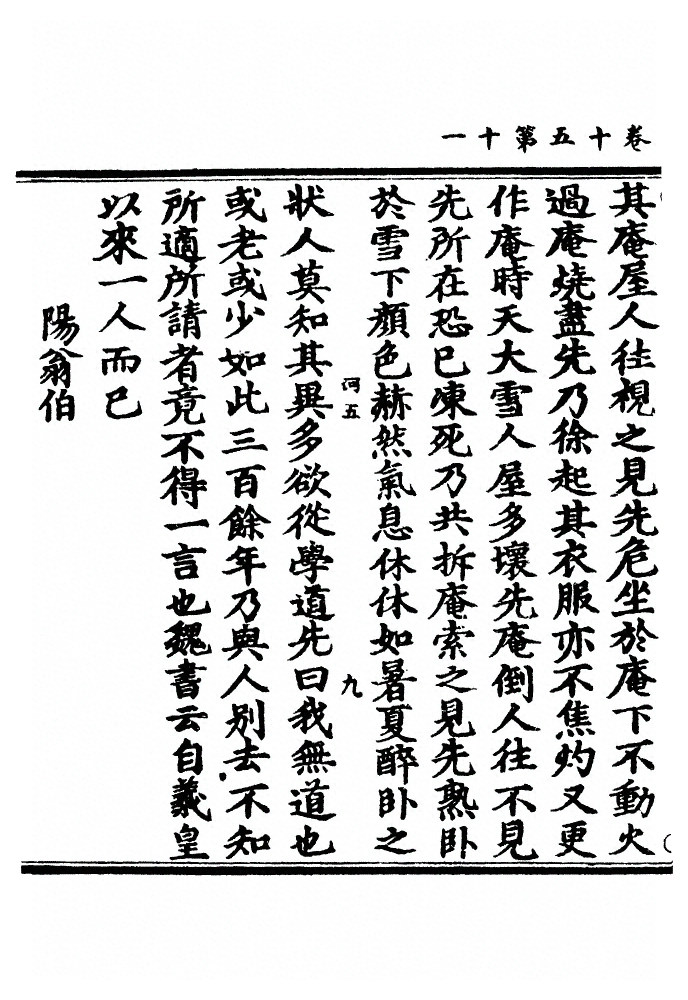 卷十五第十一
其庵屋人往視之見先危坐於庵下不動火
過庵燒盡先乃徐起其衣服亦不焦灼又更
作庵時天大雪人屋多壞先庵倒人往不見
先所在恐已凍死乃共拆庵索之見先熟卧
於雪下顏色赫然氣息休休如暑夏醉卧之
河五
九
狀人莫知其異多欲從學道先曰我無道也
或老或少如此三百餘年乃與人別去不知
所適所請者竟不得一言也魏書云自羲皇
以來一人而已
陽翁伯